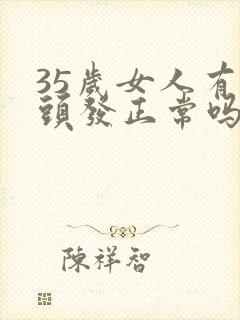 35歲女人有
頭發正常嗎
陳祥智